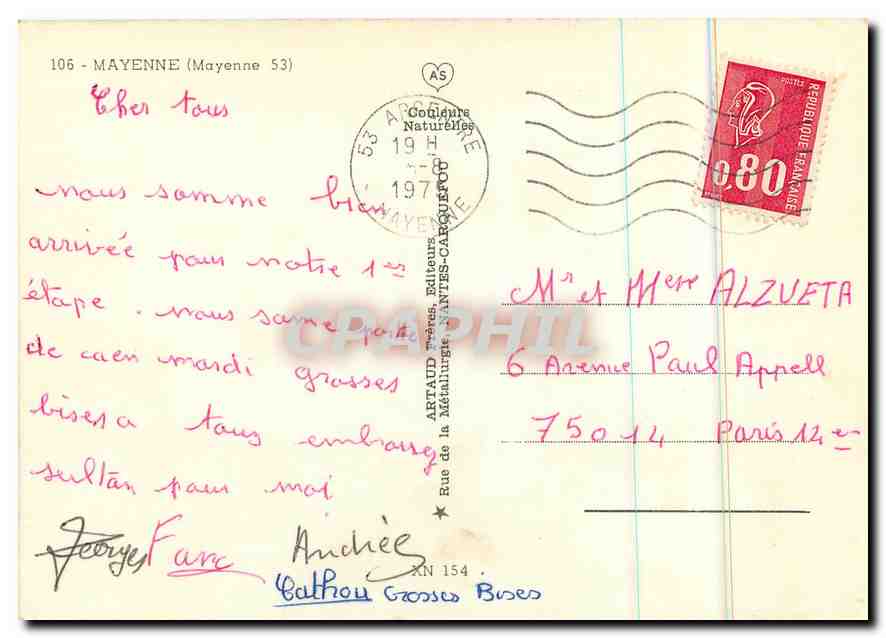 106 - MAYENNE (Mayenne 53)
Cher tous
nous somme bien
arrivée pour notre 1er
étape. nous some parte
de caen mardi grosses
bises a tous embrassy
sultan pour moi
Georges Farc Andrée
Cathou Grosses Bises
AS
Couleurs
Naturelles
53 ARGENTRE
19 H
-8
197
MAYENNE
ARTAUD Frères, Editeurs
Rue de la Métallurgie, NANTES-CARQUEFOU
XN 154
CPAPHIL
POSTES
REPUBLIQUE FRANÇAISE
0,80
Mr et Mme ALZUETA
6 Avenue Paul Appell
75014 Paris 14e